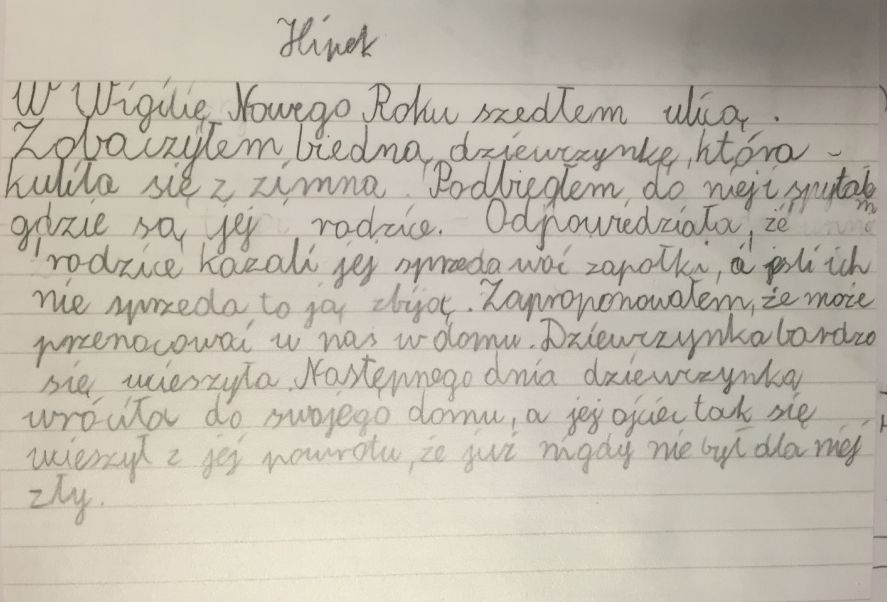 Hinek
W Wigilię Nowego Roku szedłem ulicą.
Zobaczyłem biedną dziewczynkę, która
kuliła się z zimna. Podbiegłem do niej i spytałem
gdzie są jej rodzice. Odpowiedziała, że
rodzice kazali jej sprzedawać zapałki, a jeśli ich
nie sprzeda to ją zbiją. Zaproponowałem, że może
przenocować u nas w domu. Dziewczynka bardzo
się ucieszyła. Następnego dnia dziewczynka
wróciła do swojego domu, a jej ojciec tak się
ucieszył z jej powrotu, że już nigdy nie był dla niej
zły.